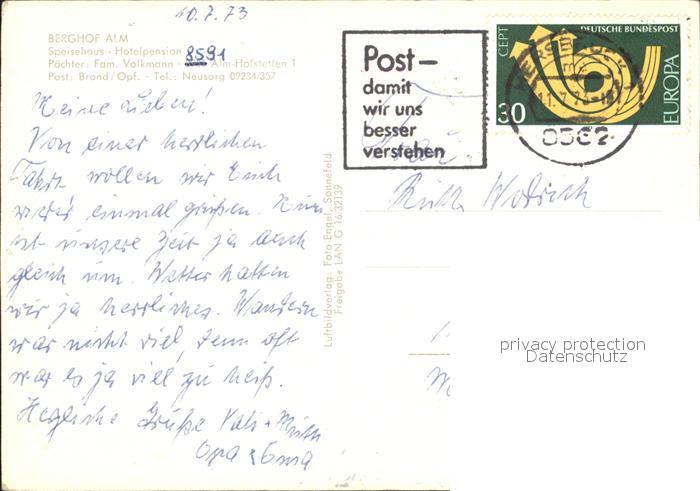 10.7.73
BERGHOF ALM
Speisehaus - Hotelpension
Pächter: Fam. Volkmann 8591 Alm-Hofstetten 1
Post: Brand/Opf. - Tel.: Neusorg 09234/357
Meine Lieben!
Von einer herrlichen
Fahrt wollen wir Euch
wieder einmal grüßen. Nun
ist unsere Zeit ja auch
gleich um. Wetter hatten
wir ja herrliches. Wandern
war nicht viel, denn oft
war es ja viel zu heiß.
Herzliche Grüße Vati + Mutti
Opa + Oma
Luftbildverlag: Foto-Engel, Sonnefeld
Freigabe LAN G 16:32139
Post–
damit
wir uns
besser
verstehen
CEPT
DEUTSCHE BUNDESPOST
EUROPA
30
11.7.73
8582
Ruth
privacy protection
Datenschutz